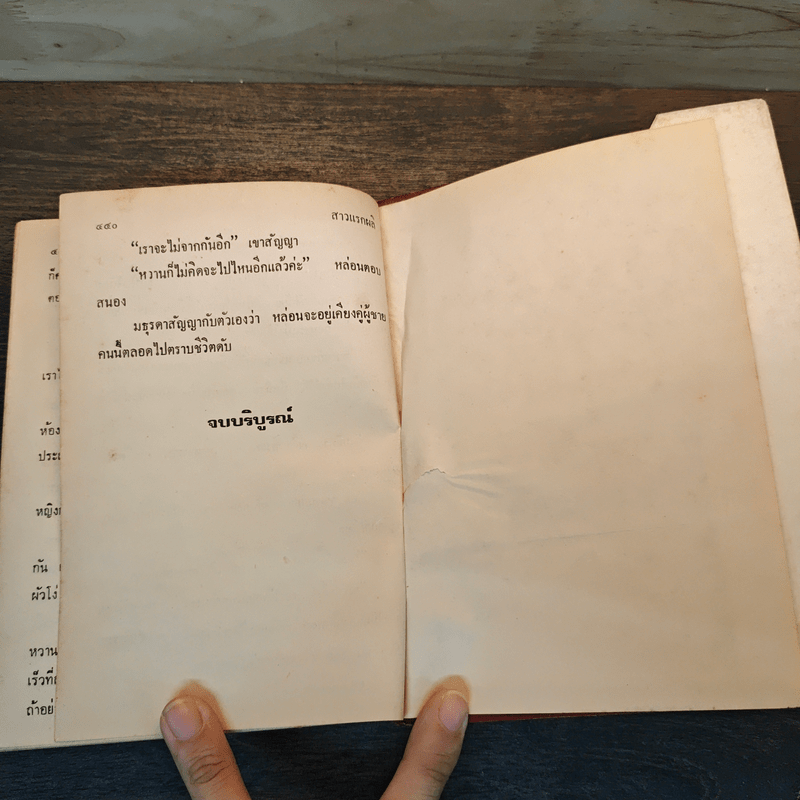 ๔๕๐
สาวแรกผลิ
“เราจะไม่จากกันอีก” เขาสัญญา
“หวานก็ไม่คิดจะไปไหนอีกแล้วค่ะ” หล่อนตอบ
สนอง
มธุรดาสัญญากับตัวเองว่า หล่อนจะอยู่เคียงคู่ผู้ชาย
คนนี้ตลอดไปตราบชีวิตดับ
จบบริบูรณ์
ห้อง
กัน
ผัวโง่
หวาน